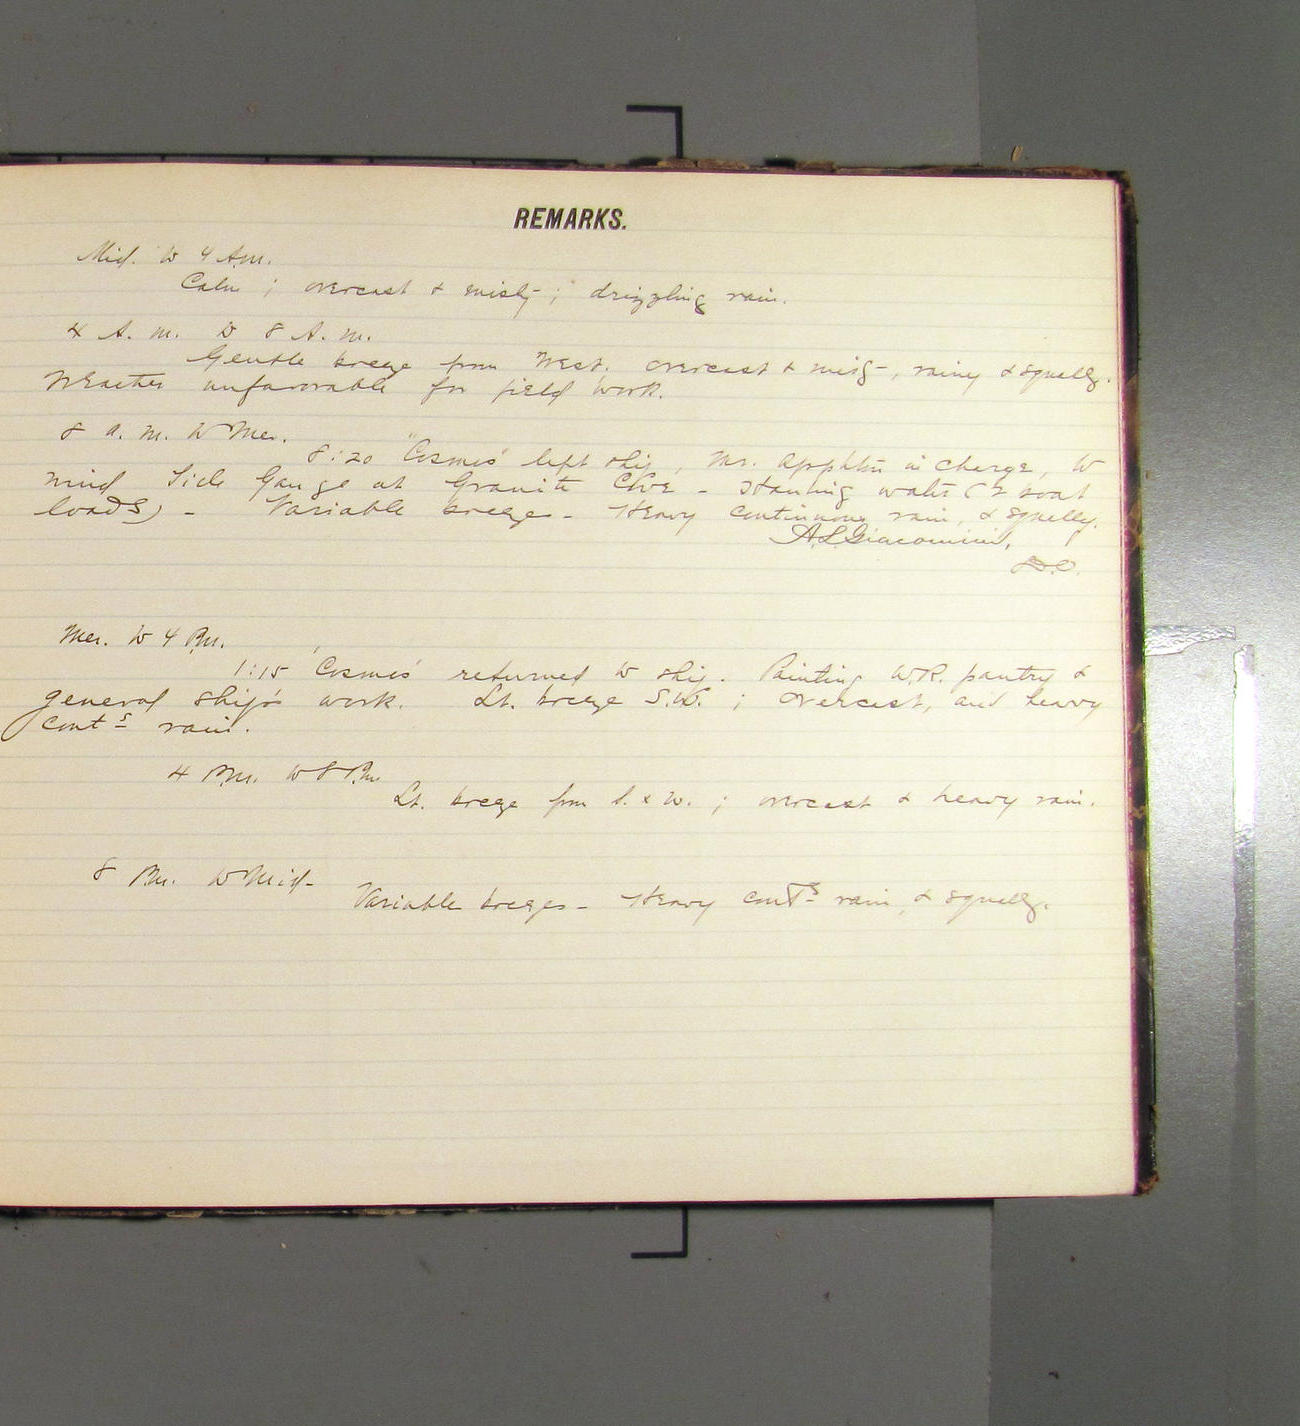 REMARKS.
Mid. to 4 A.m.
Calm ; overcast & misty ; drizzling rain.
4 A. m. to 8 A. m.
Gentle breeze from West. overcast & misty, rainy & squally.
Weather unfavorable for field work.
8 a. m. to Mer.
8:20 "Cosmos" left ship, Mr. Appleton in charge, to
mind Tide Gauge at Granite Cove - Hauling water (2 boat
loads) - Variable breeze - Heavy continuous rain, & squally.
A L Giacomini,
D.O.
Mer. to 4 P.m.
1:15 "Cosmos" returned to ship. Painting W.R. pantry &
general ship's work. Lt. breeze S.W. ; overcast, and heavy
conts rain.
4 P.m. to 8 P.m.
Lt. breeze from S. & W. ; overcast & heavy rain.
8 P.m. to Mid-
Variable breezes - Heavy conts rain, & squally.